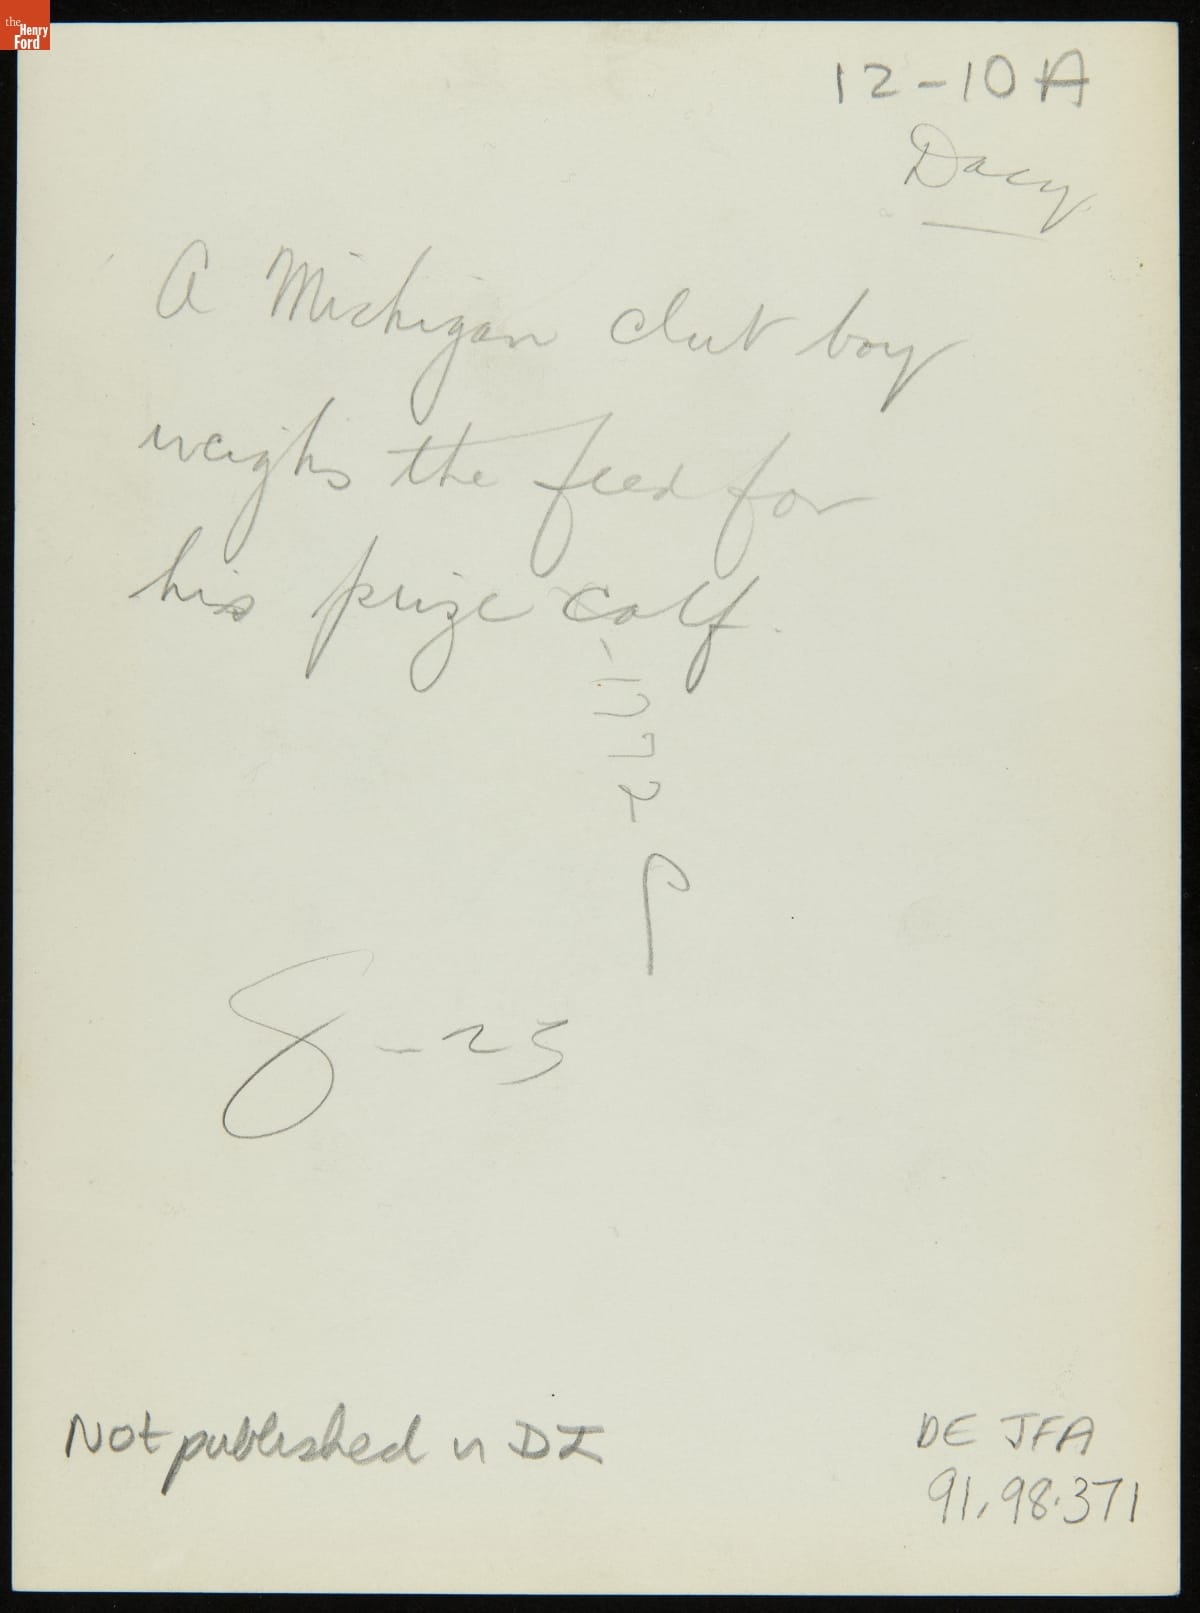 the
Henry
Ford
12-10A
Dacy
A Michigan club boy
weighs the feed for
his prize calf.
8-23
Not published in DI
DE JFA
91.98.371